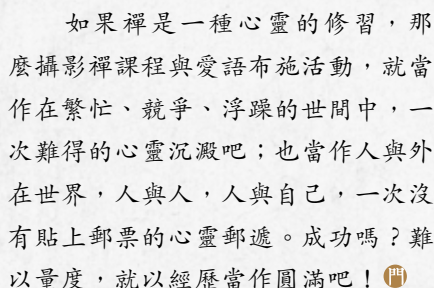 如果禪是一種心靈的修習，那
麼攝影禪課程與愛語布施活動，就當
作在繁忙、競爭、浮躁的世間中，一
次難得的心靈沉澱吧；也當作人與外
在世界，人與人，人與自己，一次沒
有貼上郵票的心靈郵遞。成功嗎？難
以量度，就以經歷當作圓滿吧！門